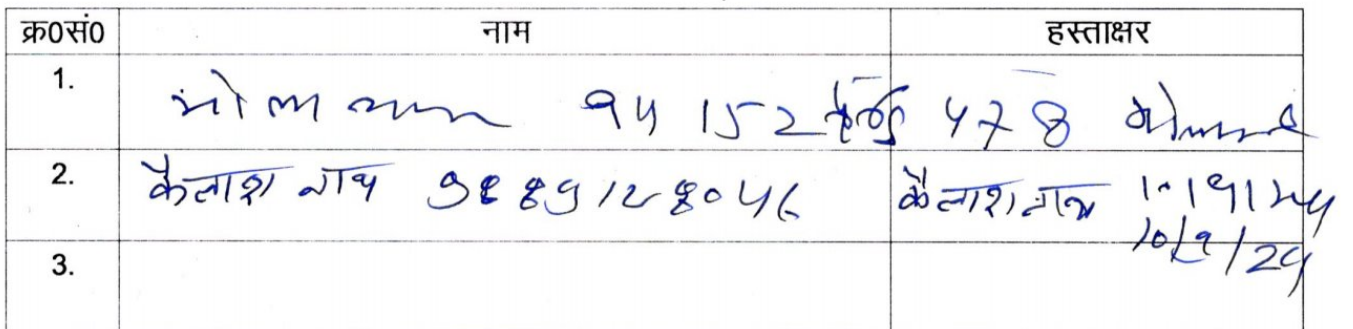 क्र0सं0 नाम हस्ताक्षर
1. भोला 94 152 478
2. कैलाश नाथ 9889128046 कैलाश नाथ 10/9/24
10/9/24
3.